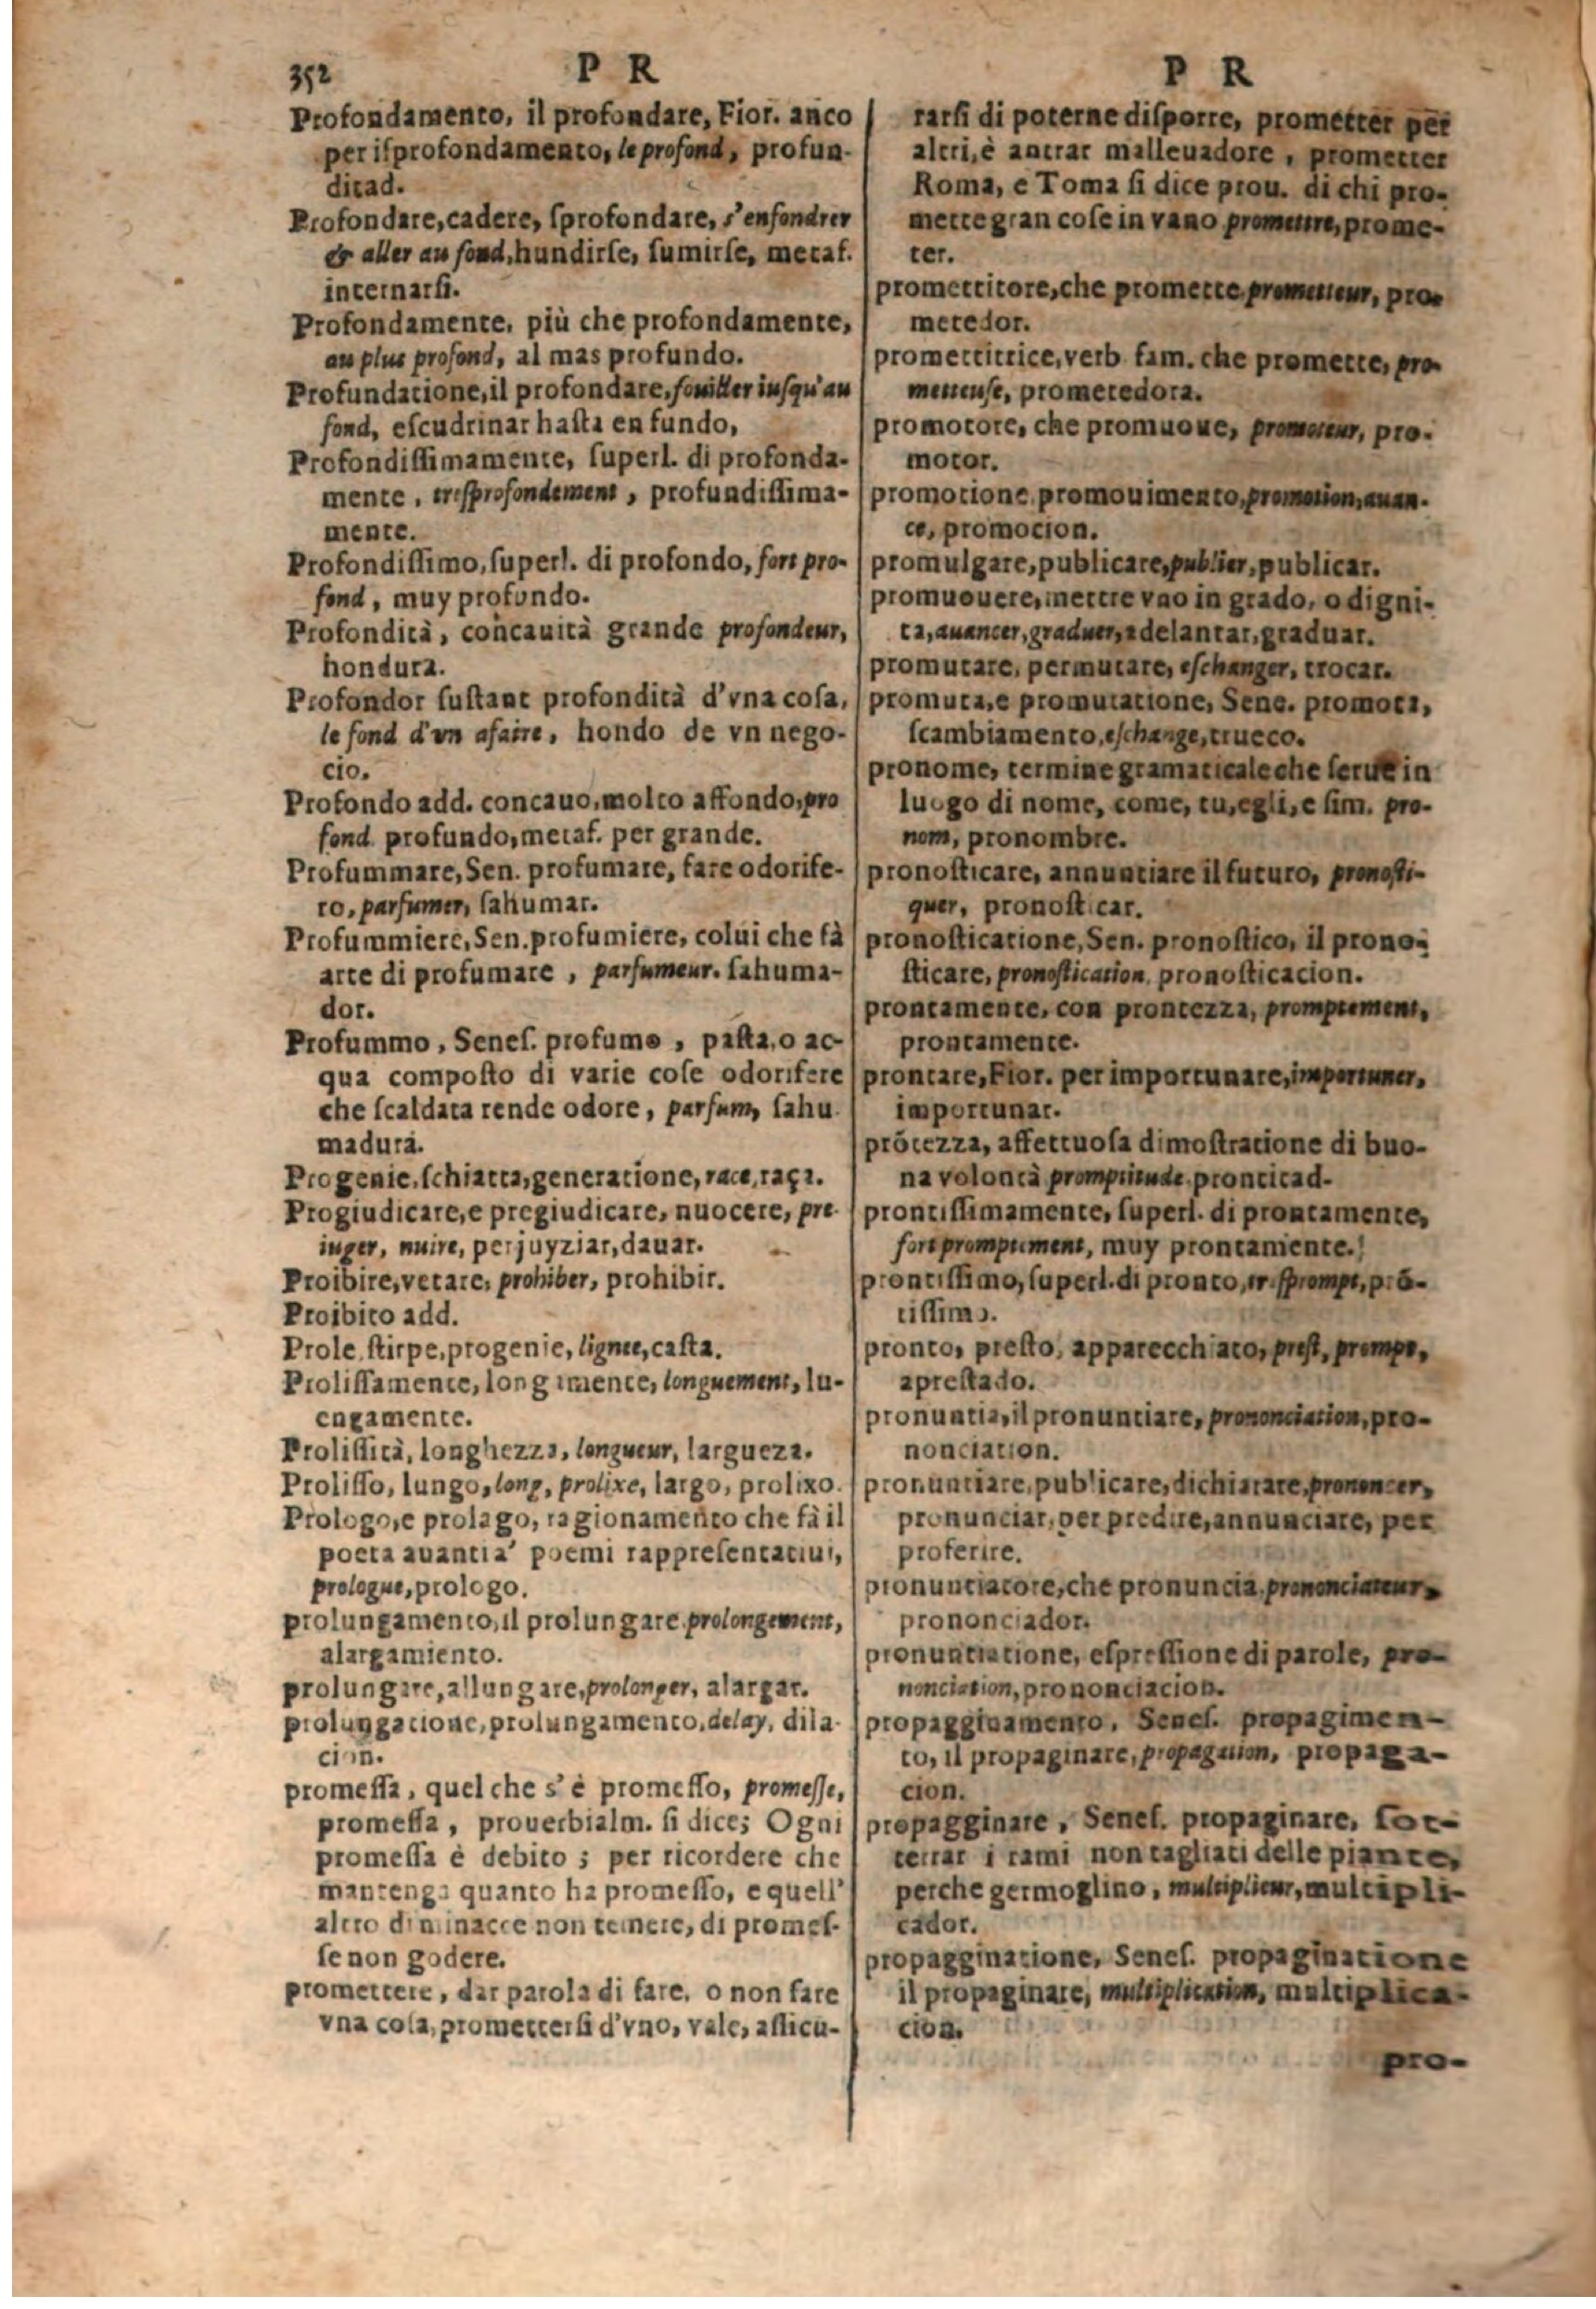 352
P R
P R
Profondamento, il profondare, Fior. anco
per isprofondamento, le profond, profun-
ditad.
Profondare, cadere, ſprofondare, s'enfondrer
& aller au fond, hundirſe, ſumirſe, metaf.
internarſi.
Profondamente, più che profondamente,
au plus profond, al mas profundo.
Profundatione, il profondare, fouiller iuſqu'au
fond, eſcudrinar haſta en fundo,
Profondiſſimamente, ſuperl. di profonda-
mente, treſprofondement, profundiſſima-
mente.
Profondiſſimo, ſuperl. di profondo, fort pro-
fond, muy profundo.
Profondità, concauità grande profondeur,
hondura.
Profondor ſuſtant profondità d'vna coſa,
le fond d'vn afaire, hondo de vn nego-
cio.
Profondo add. concauo, molto affondo, pro
fond. profundo, metaf. per grande.
Profummare, Sen. profumare, fare odorife-
ro, parfumer, ſahumar.
Profummiere, Sen. profumiere, colui che fà
arte di profumare, parfumeur. ſahuma-
dor.
Profummo, Seneſ. profumo, paſta, o ac-
qua compoſto di varie coſe odorifere
che ſcaldata rende odore, parfum, ſahu
madura.
Progenie, ſchiatta, generatione, race, raça.
Progiudicare, e pregiudicare, nuocere, pre
iuger, nuire, perjuyziar, dauar.
Proibire, vetare, prohiber, prohibir.
Proibito add.
Prole, ſtirpe, progenie, lignee, caſta.
Proliſſamente, longamente, longuement, lu-
engamente.
Proliſſità, longhezza, longueur, largueza.
Proliſſo, lungo, long, prolixe, largo, prolixo.
Prologo, e prolago, ragionamento che fà il
poeta auanti a' poemi rappreſentatiui,
prologue, prologo.
prolungamento, il prolungare prolongement,
alargamiento.
prolungare, allungare, prolonger, alargar.
prolungatione, prolungamento, delay, dila-
cion.
promeſſa, quel che s'è promeſſo, promeſſe,
promeſſa, prouerbialm. ſi dice; Ogni
promeſſa è debito; per ricordere che
mantenga quanto ha promeſſo, e quell'
altro di minacce non temere, di promeſ-
ſe non godere.
promettere, dar parola di fare, o non fare
vna coſa, prometterſi d'vno, vale, aſſicu-
rarſi di poterne diſporre, prometter per
altri, è antrar malleuadore, prometter
Roma, e Toma ſi dice prou. di chi pro-
mette gran coſe in vano promettre, prome-
ter.
promettitore, che promette prometteur, pro-
metedor.
promettitrice, verb fam. che promette, pro-
metteuſe, prometedora.
promotore, che promuoue, promoteur, pro-
motor.
promotione, promouimento, promotion, auan-
ce, promocion.
promulgare, publicare, publier, publicar.
promuouere, mettre vno in grado, o digni-
ta, auancer, graduer, adelantar, graduar.
promutare, permutare, eſchanger, trocar.
promuta, e promutatione, Sene. promota,
ſcambiamento, eſchange, trueco.
pronome, termine gramaticale che ſerue in
luogo di nome, come, tu, egli, e ſim. pro-
nom, pronombre.
pronoſticare, annuntiare il futuro, pronoſti-
quer, pronoſticar.
pronoſticatione, Sen. pronoſtico, il prono-
ſticare, pronoſtication, pronoſticacion.
prontamente, con prontezza, promptement,
prontamente.
prontare, Fior. per importunare, importuner,
importunar.
prōtezza, affettuoſa dimoſtratione di buo-
na volontà promptitude prontitad-
prontiſſimamente, ſuperl. di prontamente,
fort promptement, muy prontamente.
prontiſſimo, ſuperl. di pronto, treſprompt, prō-
tiſſimo.
pronto, preſto, apparecchiato, preſt, prompt,
apreſtado.
pronuntia, il pronuntiare, prononciation, pro-
nonciation.
pronuntiare, publicare, dichiarare, prononcer,
pronunciar, per predire, annunciare, per
proferire.
pronuntiatore, che pronuncia, prononciateur,
prononciador.
pronuntiatione, eſpreſſione di parole, pro-
nonciation, prononciacion.
propagginamento, Seneſ. propagimen-
to, il propaginare, propagation, propaga-
cion.
propagginare, Seneſ. propaginare, ſot-
terrar i rami non tagliati delle piante,
perche germoglino, multiplieur, multipli-
cador.
propagginatione, Seneſ. propaginatione
il propaginare, multiplication, multiplica-
cion.
pro-